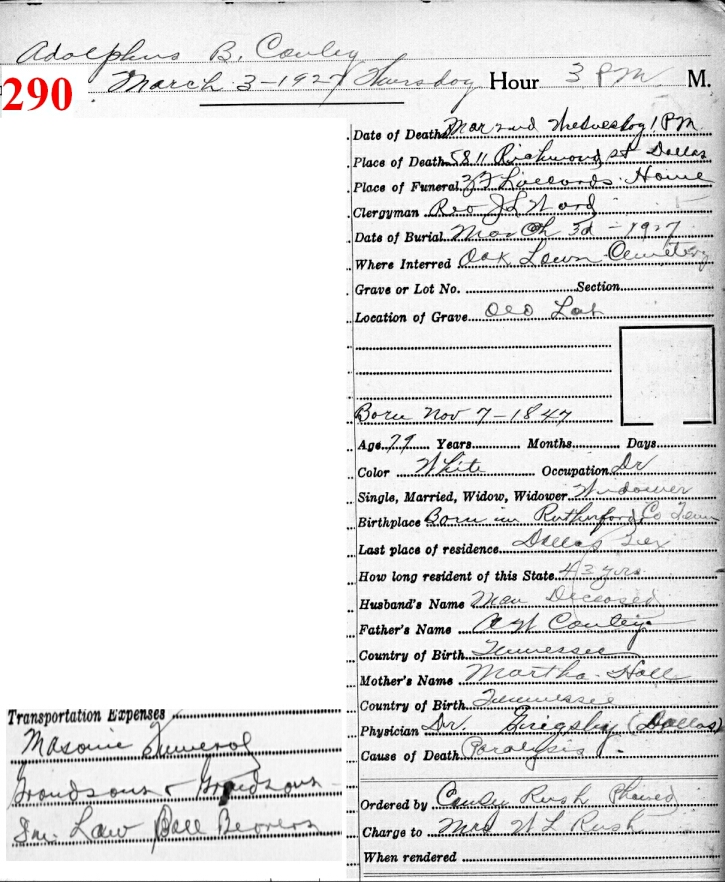 Adolphus B. Conley
290 March 3-1927 Thursday Hour 3 PM M.
Date of Death Mar 2nd Wednesday 1 PM
Place of Death 5811 Richmond St Dallas
Place of Funeral Home
Clergyman Rev J L Ward
Date of Burial March 3d - 1927
Where Interred Oak Lawn Cemetery
Grave or Lot No. Section
Location of Grave Old Lot
Born Nov 7-1847
Age 79 Years Months Days
Color White Occupation Dr
Single, Married, Widow, Widower Widower
Birthplace Born in Rutherford Co Tenn
Last place of residence Dallas Tex
How long resident of this State 43 yrs
Husband's Name Deceased
Father's Name Conley
Country of Birth Tennessee
Mother's Name Martha Hall
Country of Birth Tennessee
Physician Dr Grigsby (Dallas)
Cause of Death Paralysis
Ordered by Rush Phoned
Charge to Mrs W L Rush
When rendered
Transportation Expenses
Masonic Funeral
Grandsons & Grandsons
In Law Pall Bearers